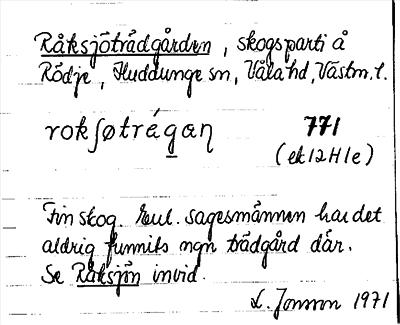 Råksjöträdgården, skogsparti å
Rödje, Huddunge sn, Våla hd, Västm. l.
rokʃøtrágan 771
(ek 12H1e)
Fin skog. Enl. sagesmännen har det
aldrig funnits ngn trädgård där.
Se Råksjön invid.
L. Jonsson 1971